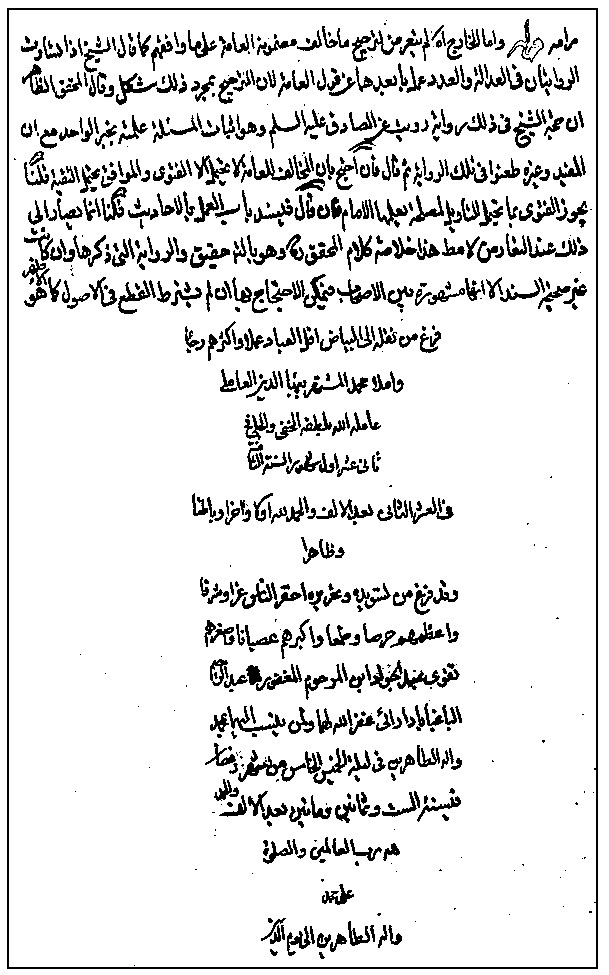 مرامه واما الخارج اه لم يتعرض لترجيح ما خالف مضمونه العامة على ما وافقهم كما قال الشيخ اذا تساوت
الروايتان في العدالة والعدد عمل بابعدهما عن قول العامة لان الترجيح بمجرد ذلك مشكل وقال المحقق الظاهر
ان حجة الشيخ في ذلك رواية رويت عن الصادق عليه السلم وهو اثبات المسئلة علمية بخبر الواحد مع ان
المفيد وغيره طعنوا في تلك الرواية ثم قال فان احتج بان المخالف للعامة لا يحتمل الا الفتوى والموافق يحتمل التقية قلنا
يجوز الفتوى بما يحتمل التاويل لمصلحة يعلمها الامام فان قال فيسند باب العمل بالاحاديث قلنا انما يصار الى
ذلك عند التعارض لا مط هذا خلاصة كلام المحقق ره وهو بالمة حقيق والرواية التي ذكرها وان كانت
غير صحيح السند الا انها مشهورة بين الاصحاب فيمكن الاحتجاج بها ان لم يشترط القطع في الاصول كما هو
فرغ من نقله الى البياض اقل العباد عملا واكثرهم رجاء
واملا محمد المشتهر ببهاء الدين العاملي
عامله الله بلطفه الخفي والجلي في
ثاني عشر اول شهور السنة الثامنة
في العشر الثاني بعد الالف والحمد لله اولا واخرا وباطنا
وظاهرا
وقد فرغ من تسويده وتحريره احقر الناس عزا وشرفا
واعظمهم حرصا وطمعا واكبرهم عصيانا واصغرهم
تقوى عبد الجواد ابن المرحوم المغفور
غفر الله لهما ولمن ينتسب اليهما بمحمد
واله الطاهرين في ليلة الخميس الخامس من شهر رمضان
في سنة الست وثمانين ومائتين بعد الالف والحمد
لله رب العالمين والصلوة
على محمد
واله الطاهرين الى يوم الدين